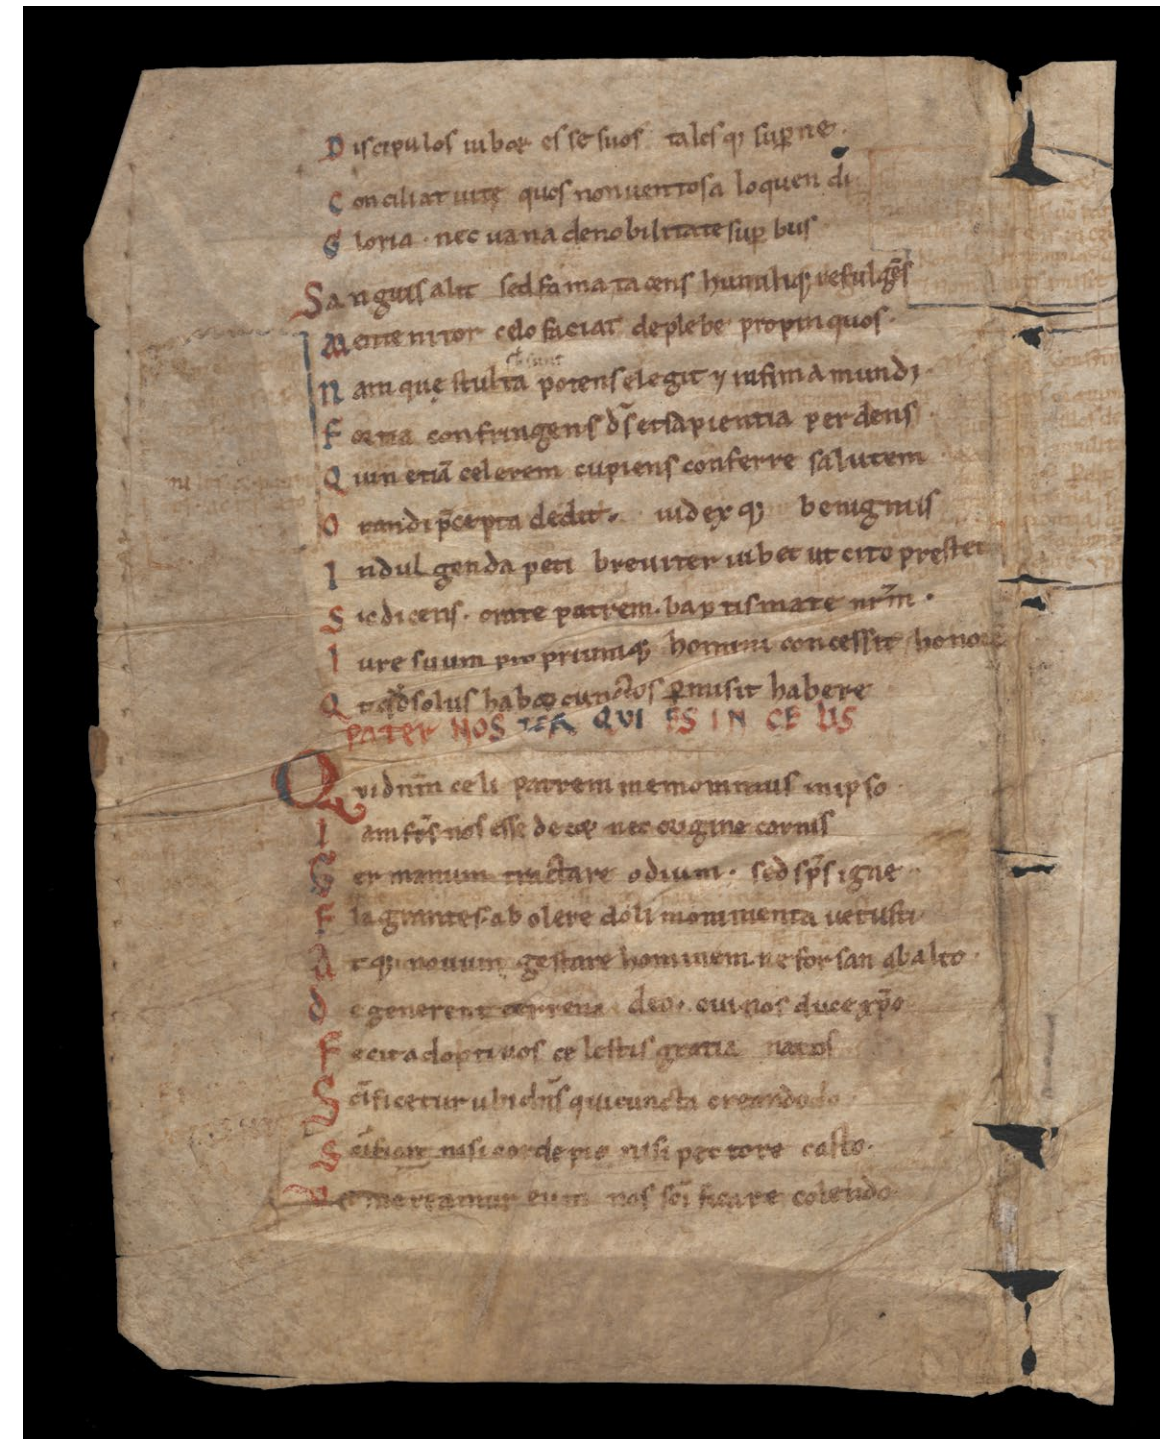 Discipulos iubet esse suos talesq; sup̱ne.
Conciliat uitę quos non uentosa loquendi
Gloria. nec uana de nobilitate sup̱bus
Sanguis alit sed fama tacens humilisq; refulgēs
Mente nitor celo faciat de plebe propinquos.
Namque stulta potens elegit ⁊ infima mundi.
Fortia confringens d̄s et sapientia perdens.
Quin etiā celerem cupiens conferre salutem
Orandi p̄cepta dedit. iudexq; benignus
Indulgenda peti breuiter iubet ut cito prestet
Sic dicens. orate patrem. baptismate nr̄m.
Iure suum propriumq; homini concessit honorē
Qt qd̄ solus habet cunctos p̱misit habere
PATER NOSTER QUI ES IN CELIS
Quid nīm celi patrem meminimus in ipso
Iam fr̄s nos esse decet nec origine carnis
Germanum tractare odium. sed sp̄s igne.
Flagrantes. abolere doli monimenta uetusti
Atq; nouum gestare hominem. ne forsan ab alto.
Degenerent terrena deo. cui nos duce xp̄o
Fecit adoptiuos celestis gratia natos
Sc̄ificetur ubi dn̄s qui cuncta creando
Sc̄ificat nisi corde pio nisi pectore casto.
Ut mereamur eum nos sc̄ificare colendo